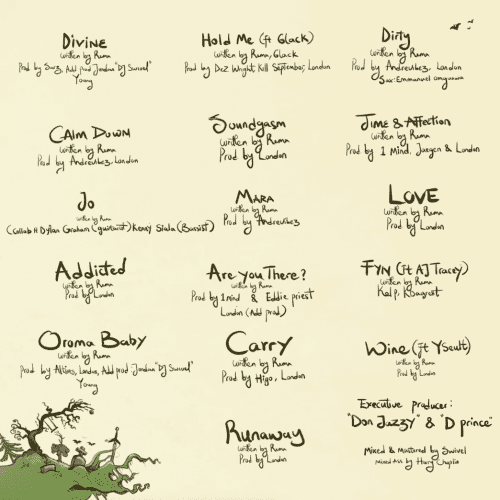 Divine
written by Rema
Prod by Sarz, Add prod Jordan "DJ Swivel"
Young
Hold Me (ft 6lack)
written by Rema, 6lack
Prod by Dez Wright, Kill September, London
Dirty
written by Rema
Prod by Andrevibez, London
Sax: Emmanuel
Calm Down
written by Rema
Prod by Andrevibez, London
Soundgasm
written by Rema
Prod by London
Time & Affection
written by Rema
Prod by 1 Mind, Jaegen & London
Jo
written by Rema
(Collab ft Dylan Graham (guitarist) Keney Slala (Bassist)
Mara
written by Rema
Prod by Andrevibez
LOVE
written by Rema
Prod by London
Addicted
written by Rema
Prod by London
Are You There?
written by Rema
Prod by 1mind & Eddie priest
London (Add prod)
FYN (ft AJ Tracey)
written by Rema
Oroma Baby
written by Rema
prod by Altims, London, Add prod Jordan "DJ Swivel"
Young
Carry
written by Rema
Prod by Higo, London
Wine (ft Yseult)
written by Rema
Prod by London
Runaway
written by Rema
Prod by London
Executive producer:
"Don Jazzy" & "D prince"
Mixed & Mastered by Swivel
Mixed Asst by Harry Chaplin